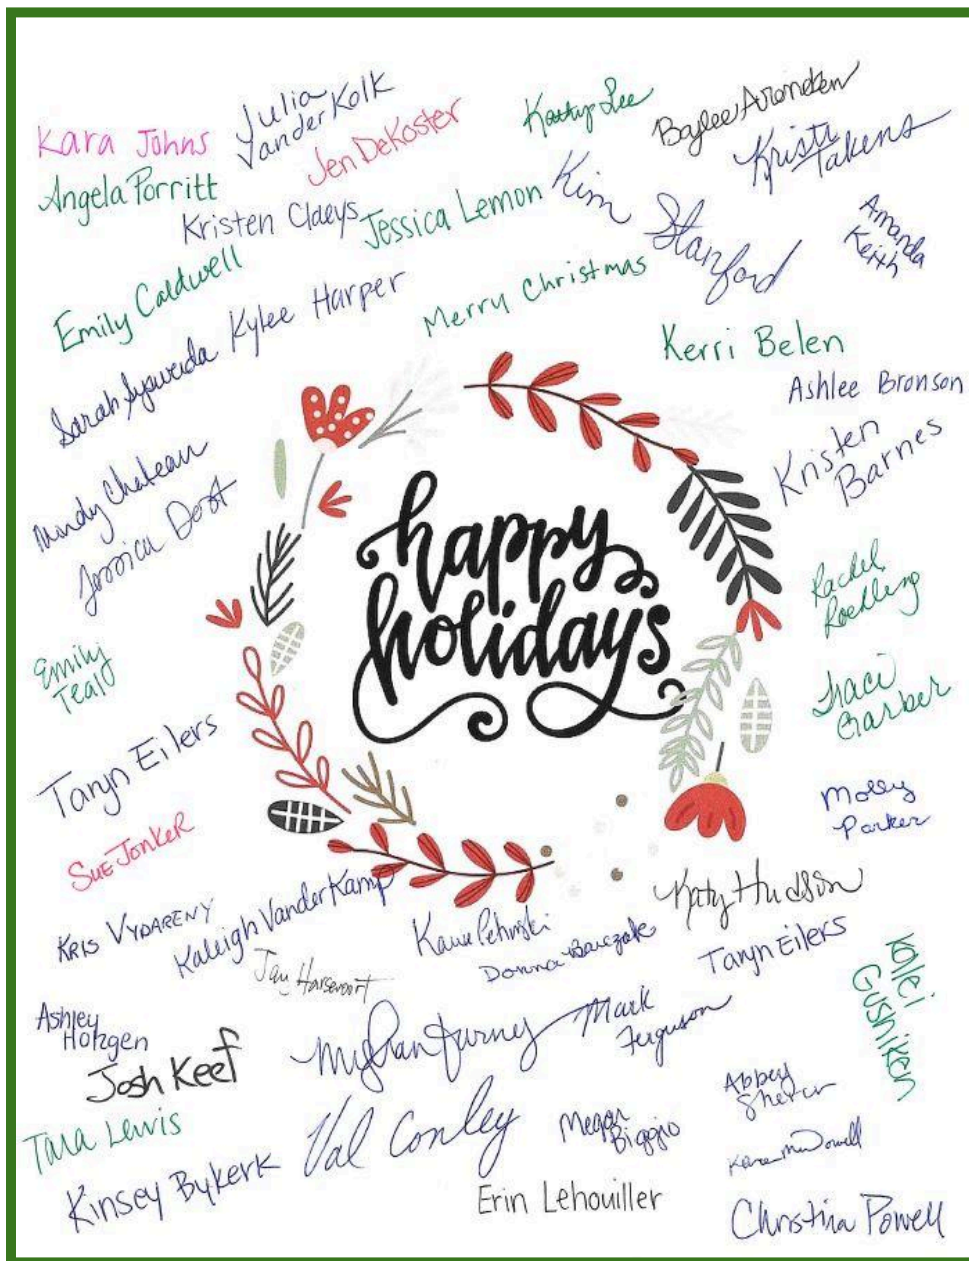 Kara Johns
Julia
VanderKolk
Jen DeKoster
Kathy Lee
Baylee
Kristi
Takens
Angela Porritt
Kristen Claeys
Jessica Lemon
Kim Stanford
Amanda
Keith
Emily Caldwell
Kylee Harper
Merry Christmas
Kerri Belen
Sarah
Ashlee Bronson
Kristen
Barnes
Mindy Chateau
Jessica
happy
holidays
Rachel
Roehling
Emily
Teal
Traci
Barber
Taryn Eilers
Molly
Parker
Sue Jonker
Kris Vydareny
Kaleigh VanderKamp
Katy Hudson
Donna
Taryn Eilers
Kolei
Gushiken
Ashley
Josh Keef
Mark
Ferguson
Abbey
Tara Lewis
Val Conley
Megan
Biggio
McDowell
Kinsey Bykerk
Erin Lehouiller
Christina Powell